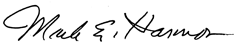 Mark E. Harmon